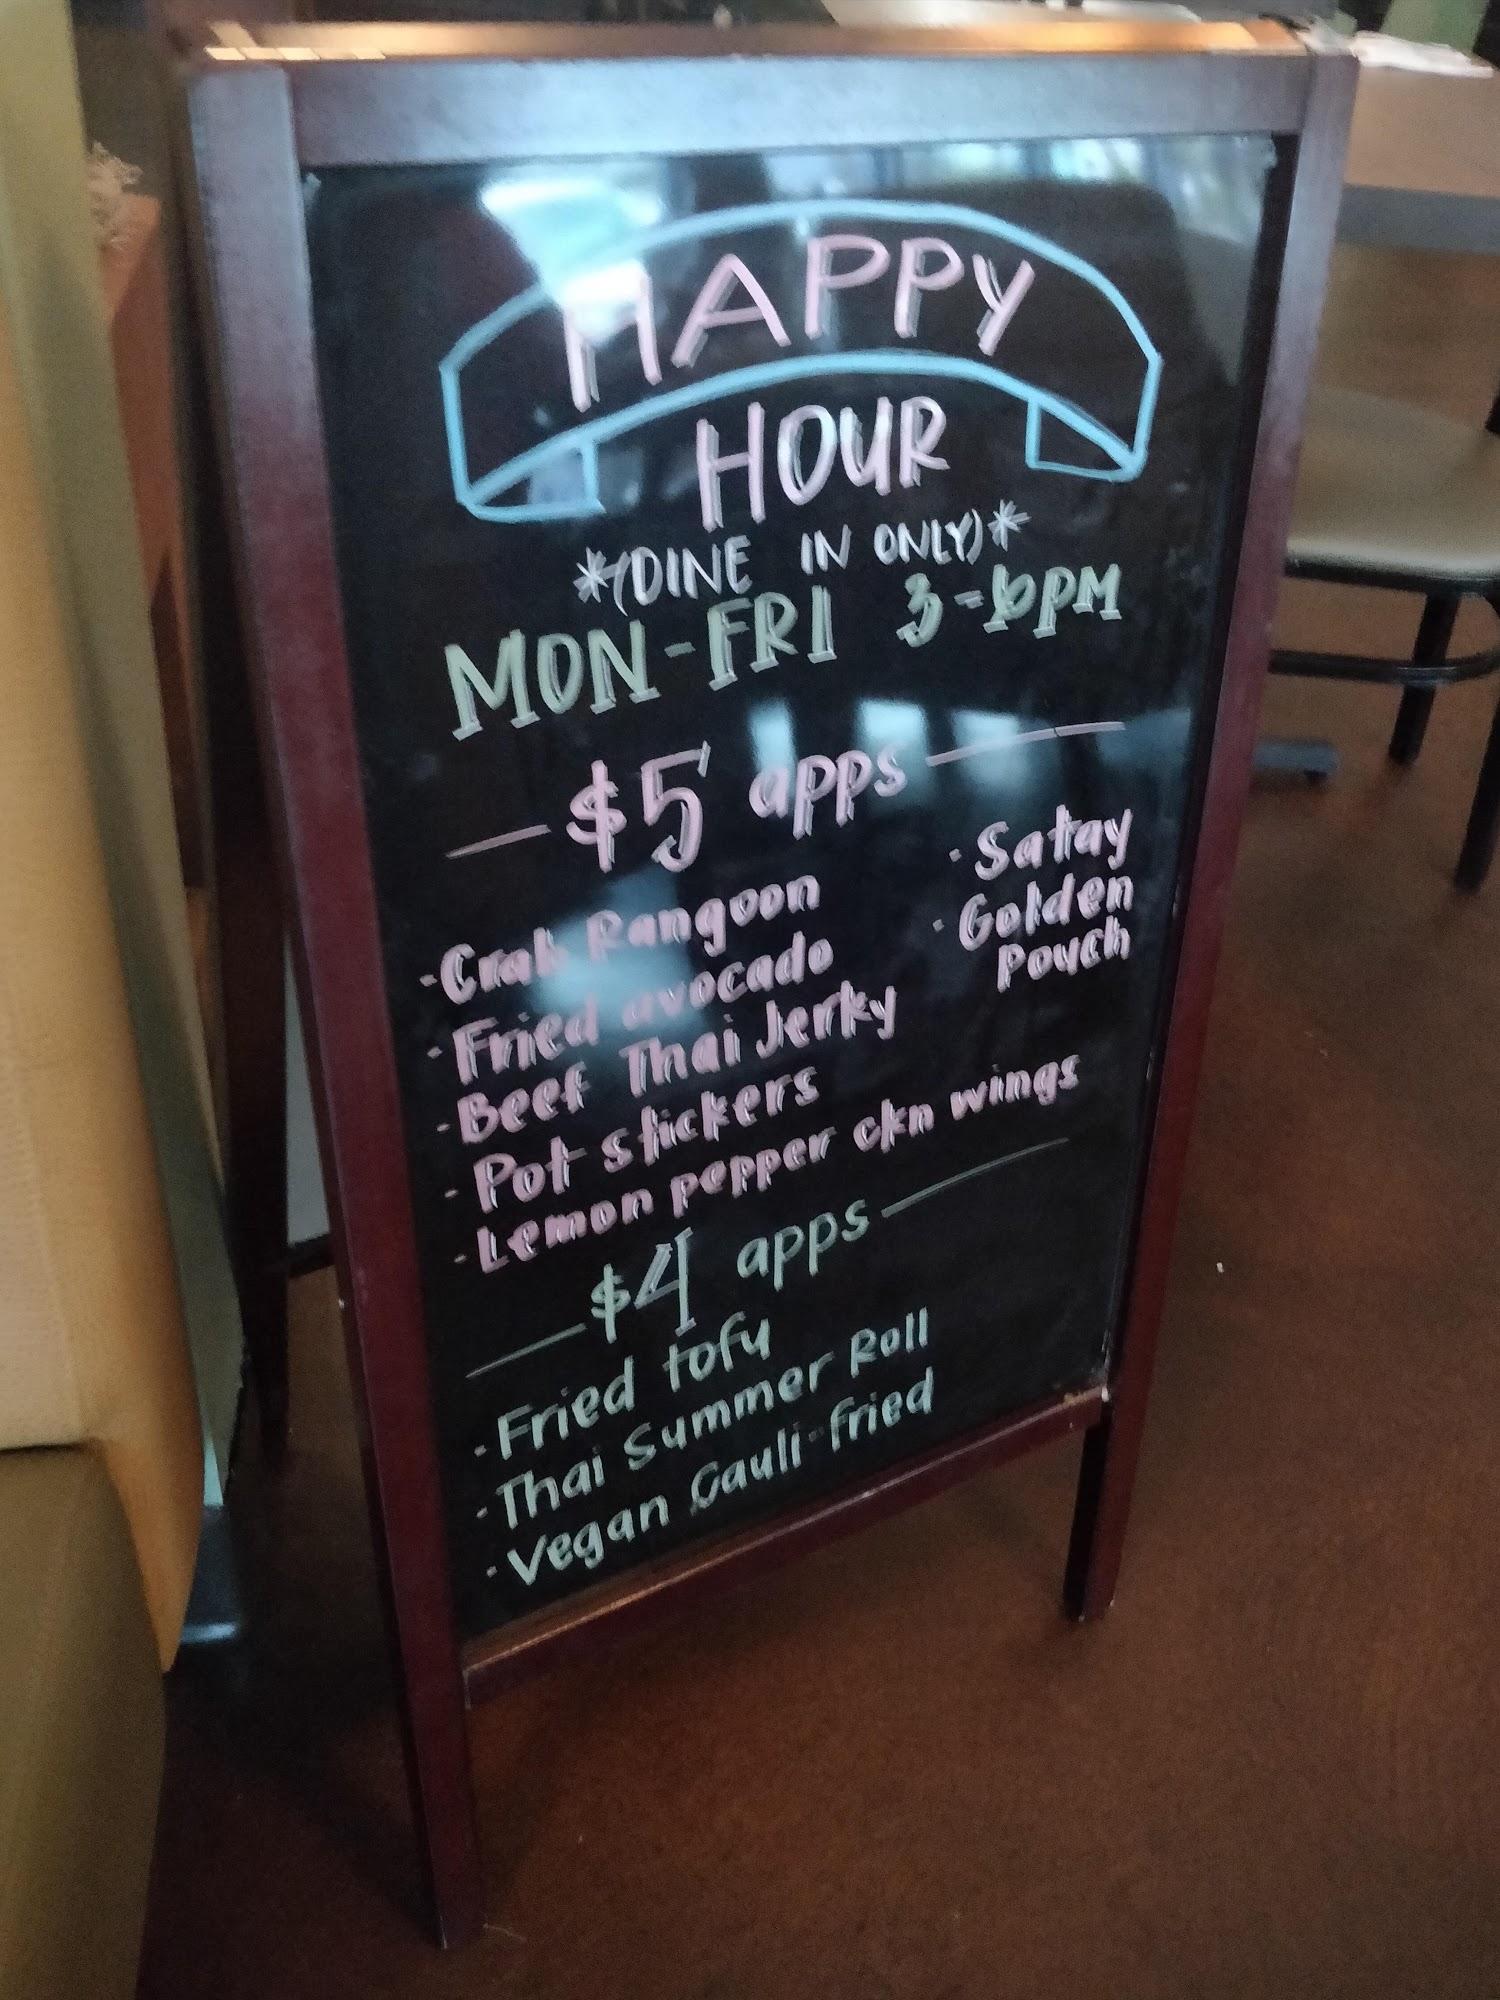 HAPPY
HOUR
*(DINE IN ONLY)*
MON-FRI 3-6PM
$5 apps
- Crab Rangoon
- Fried avocado
- Beef Thai Jerky
- Pot stickers
- Lemon pepper ckn wings
- Satay
- Golden
Pouch
$4 apps
- Fried tofu
- Thai Summer Roll
- Vegan Cauli-fried